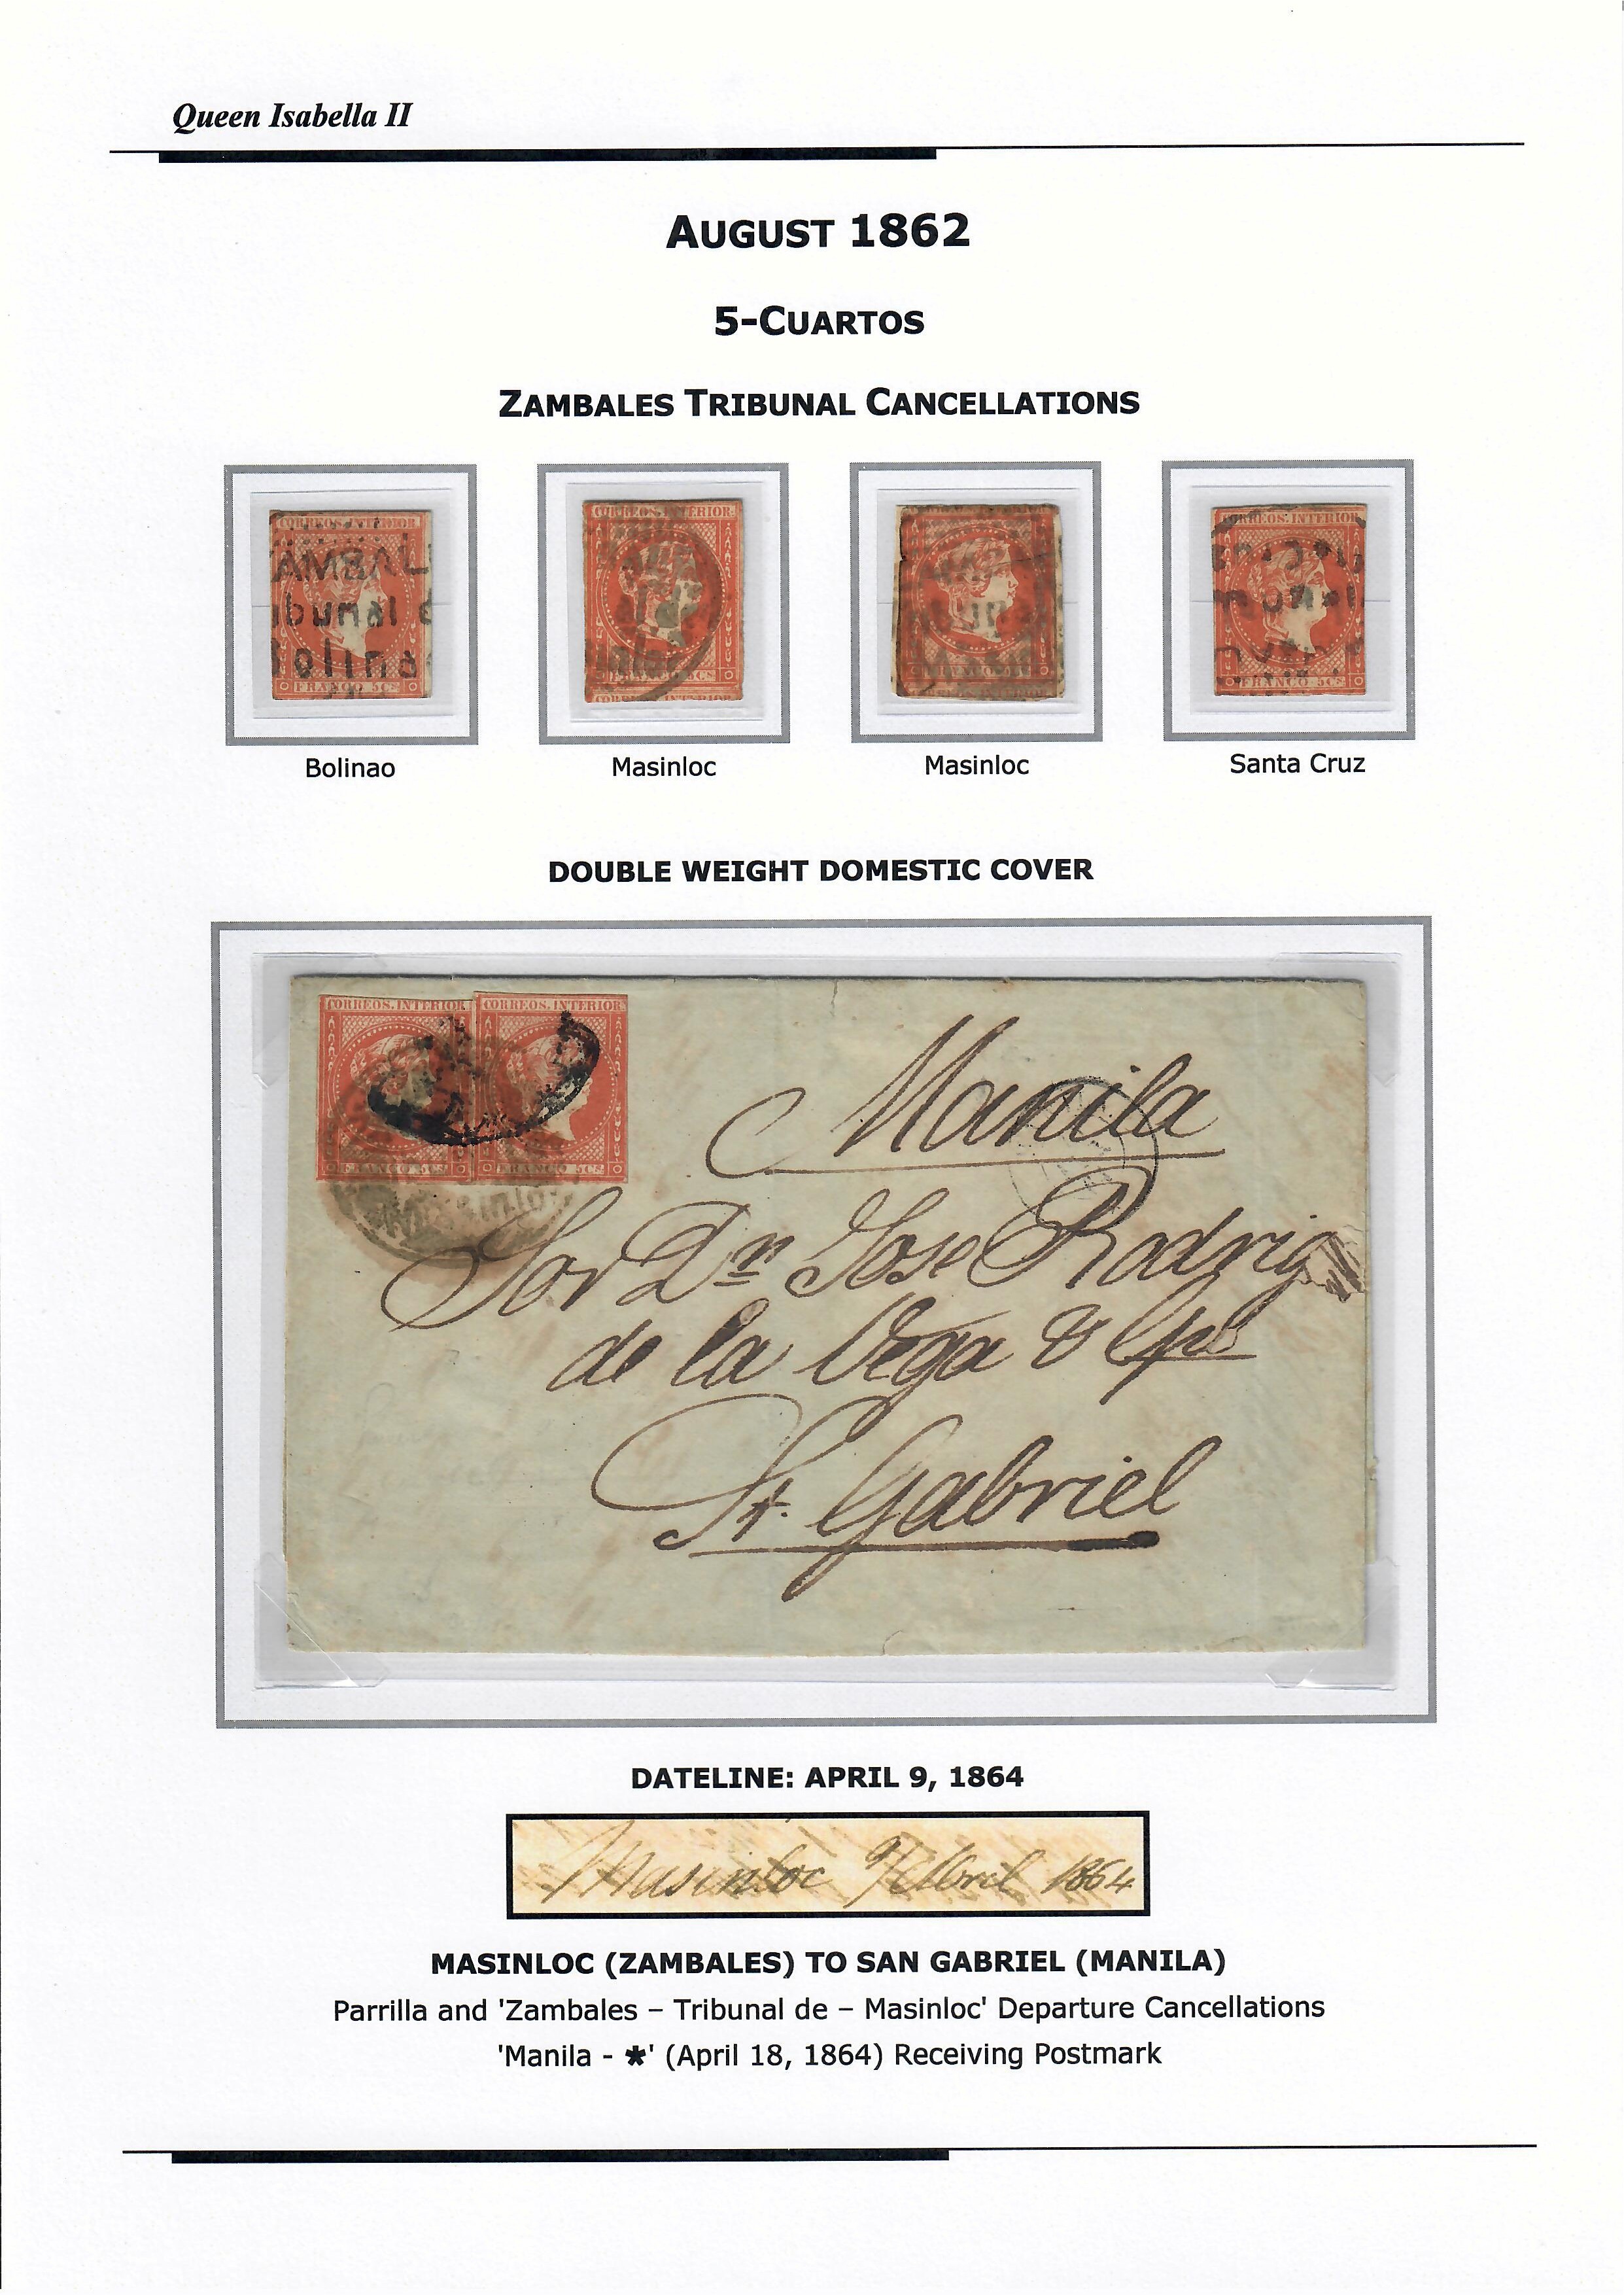 Queen Isabella II
AUGUST 1862
5-CUARTOS
ZAMBALES TRIBUNAL CANCELLATIONS
CORREOS. INTERIOR
AMBAL
ibunal d
olina
FRANCO 5Cs
CORREOS. INTERIOR
CORREOS. INTERIOR
CORREOS. INTERIOR
FRANCO 5Cs
Bolinao
Masinloc
Masinloc
Santa Cruz
DOUBLE WEIGHT DOMESTIC COVER
CORREOS. INTERIOR
CORREOS. INTERIOR
FRANCO 5Cs
FRANCO 5Cs
Masinlo
Manila
Sor Dn Jose Rodrig
de la Vega & Cpa
St. Gabriel
DATELINE: APRIL 9, 1864
Masinloc 9/Abril 1864
MASINLOC (ZAMBALES) TO SAN GABRIEL (MANILA)
Parrilla and 'Zambales – Tribunal de – Masinloc' Departure Cancellations
'Manila - *' (April 18, 1864) Receiving Postmark